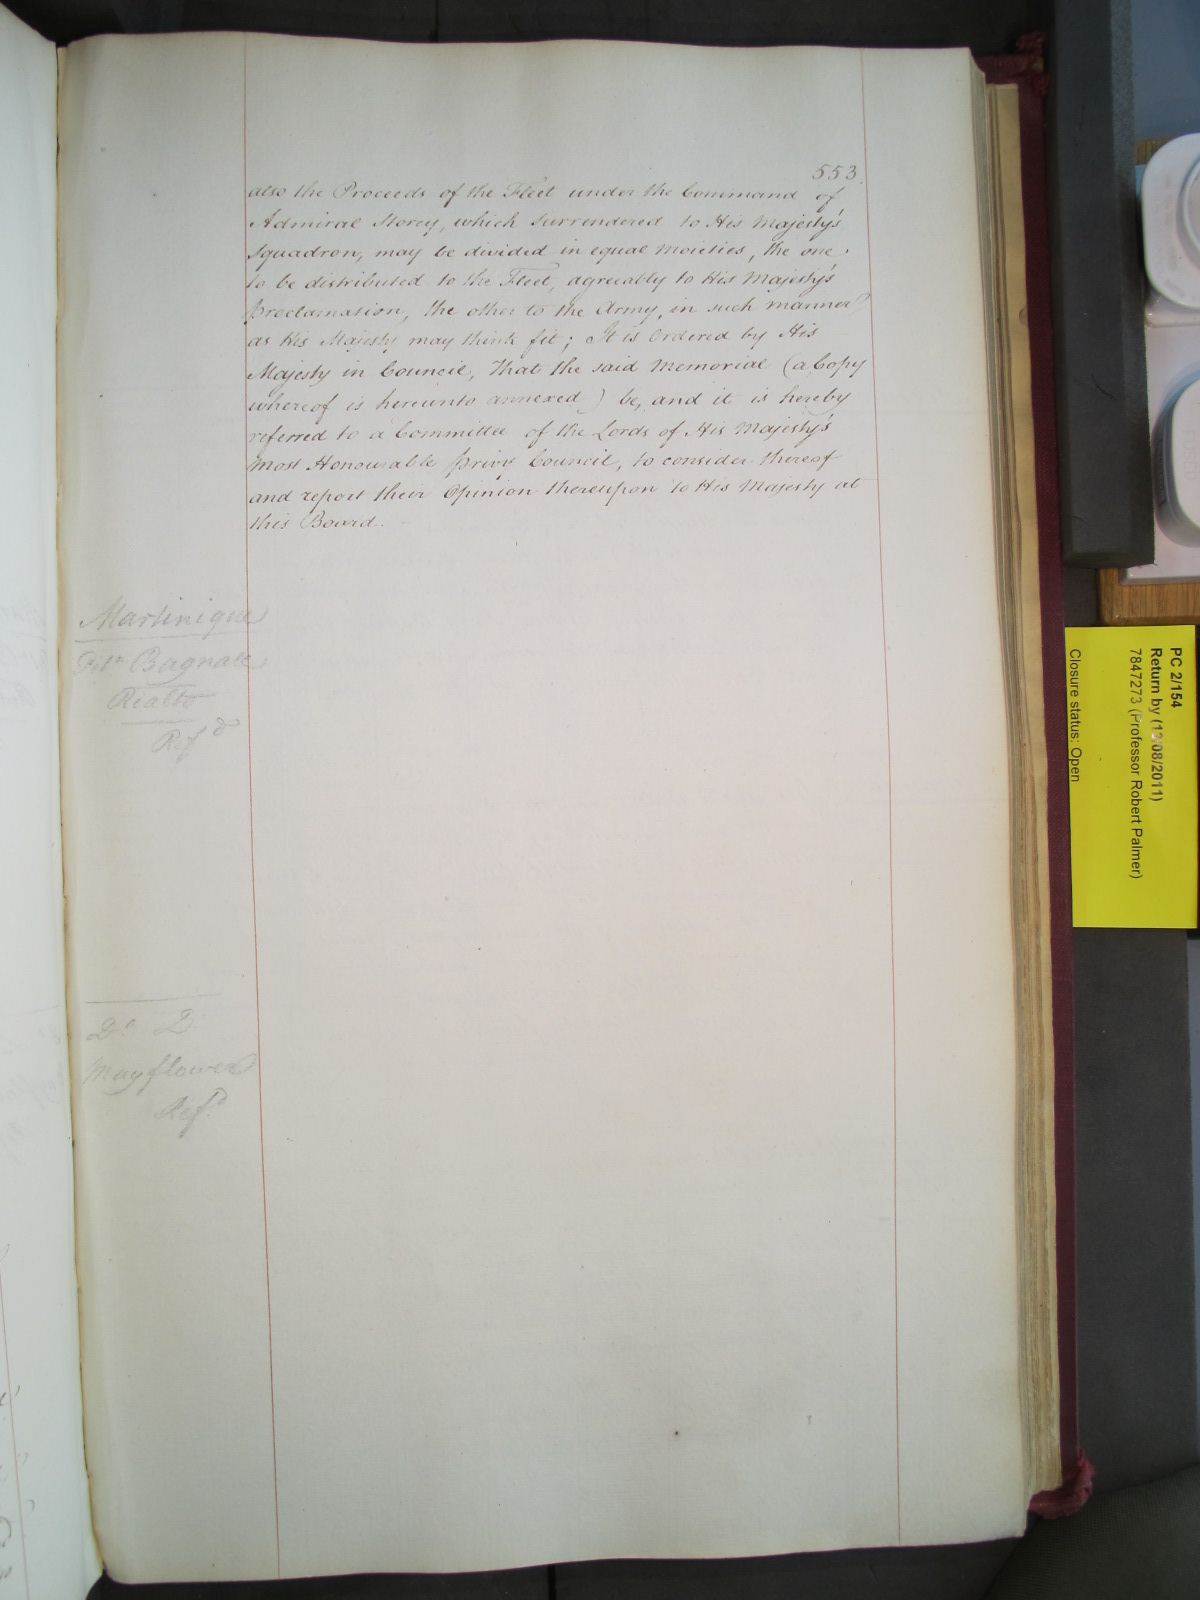 553.
also the Proceeds of the Fleet under the Command of
Admiral Storey, which surrendered to His Majesty's
Squadron, may be divided in equal Moieties, the one
to be distributed to the Fleet, agreeably to His Majesty's
Proclamation, the other to the Army, in such manner
as His Majesty may think fit; It is Ordered by His
Majesty in Council, That the said Memorial (a Copy
whereof is hereunto annexed) be, and it is hereby
referred to a Committee of the Lords of His Majesty's
Most Honourable Privy Council, to consider thereof
and report their Opinion thereupon to His Majesty at
this Board.
Martinique
Petn Bagnall
Rialto
Refd
Mayflower
Refd
PC 2/154
Return by (13/08/2011)
7847273 (Professor Robert Palmer)
Closure status: Open